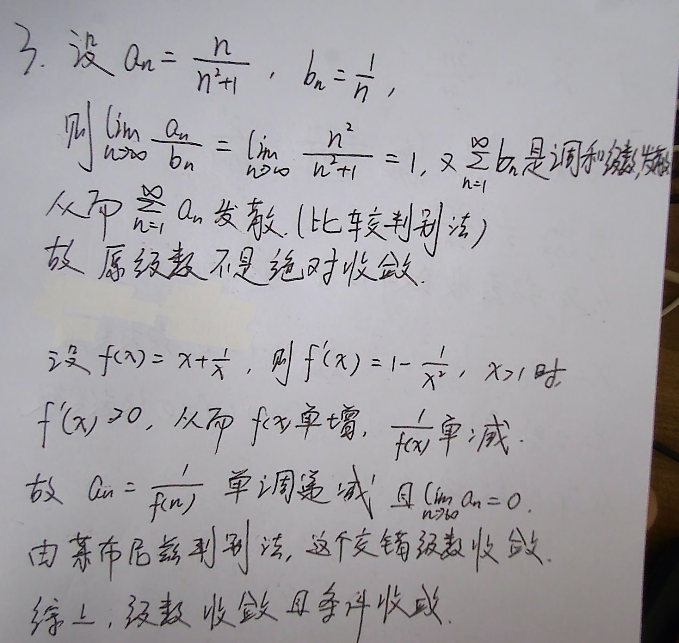 3. 设 aₙ = n/(n²+1) , bₙ = 1/n ,
则 lim n→∞ aₙ/bₙ = lim n→∞ n²/(n²+1) = 1, 又 ∑ n=1 ∞ bₙ 是调和级数,发散
从而 ∑ n=1 ∞ aₙ 发散. (比较判别法)
故 原级数不是绝对收敛.
设 f(x) = x + 1/x , 则 f'(x) = 1 - 1/x² , x>1 时
f'(x)>0, 从而 f(x) 单增, 1/f(x) 单减.
故 aₙ = 1/f(n) 单调递减 且 lim n→∞ aₙ = 0.
由莱布尼兹判别法, 这个交错级数收敛.
综上, 级数收敛且条件收敛.